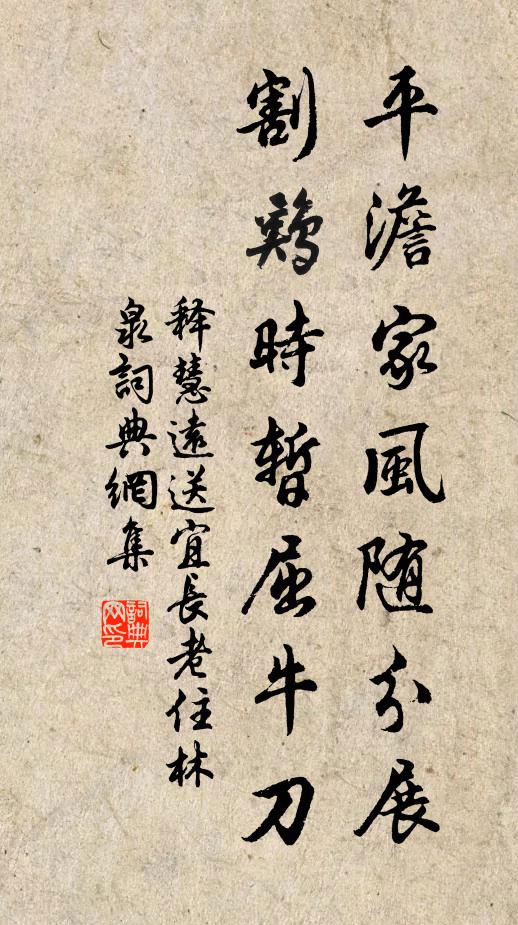 平澹家風随分展
割鷄時暫屈牛刀
释慧遠送宜長老住林
泉詞典網集
詞典
网印